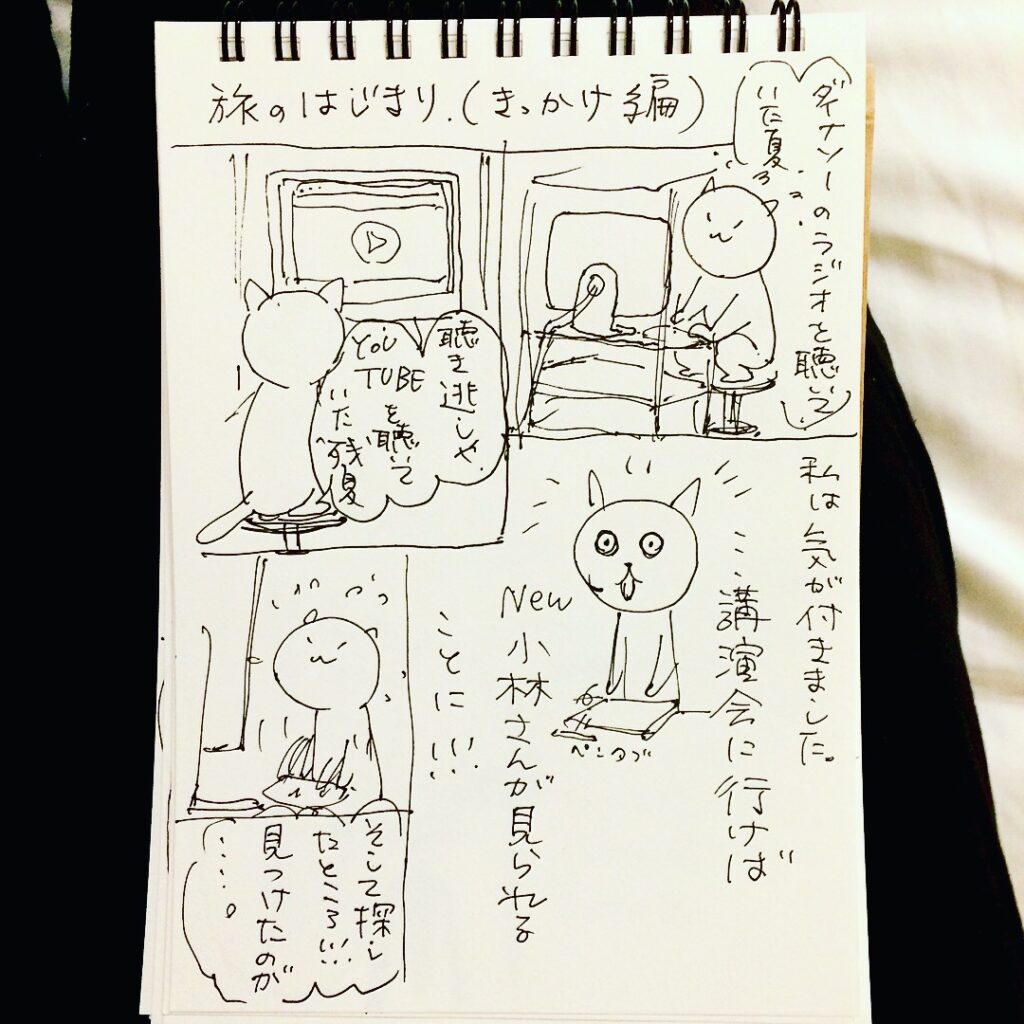 旅のはじまり.(きっかけ編)
ダイナソーのラジオを聴いて
いた夏
聴き逃しや、
YOU
TUBE
を聴いて
いた残夏
私は気が付きました。
…講演会に行けば
New
小林さんが見られる
ことに!!!
ペンタブ
そして探し
たところ!!!
見つけたのが
・・・・。